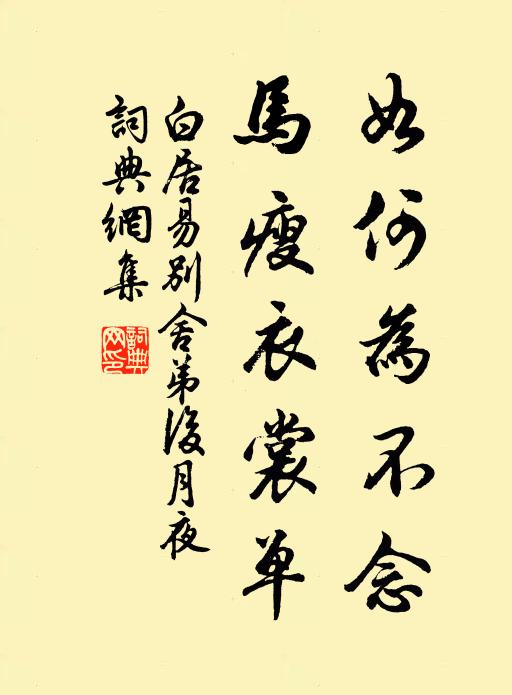 如何為不念
馬瘦衣裳单
白居易別舍弟後月夜
詞典網集
詞典網印